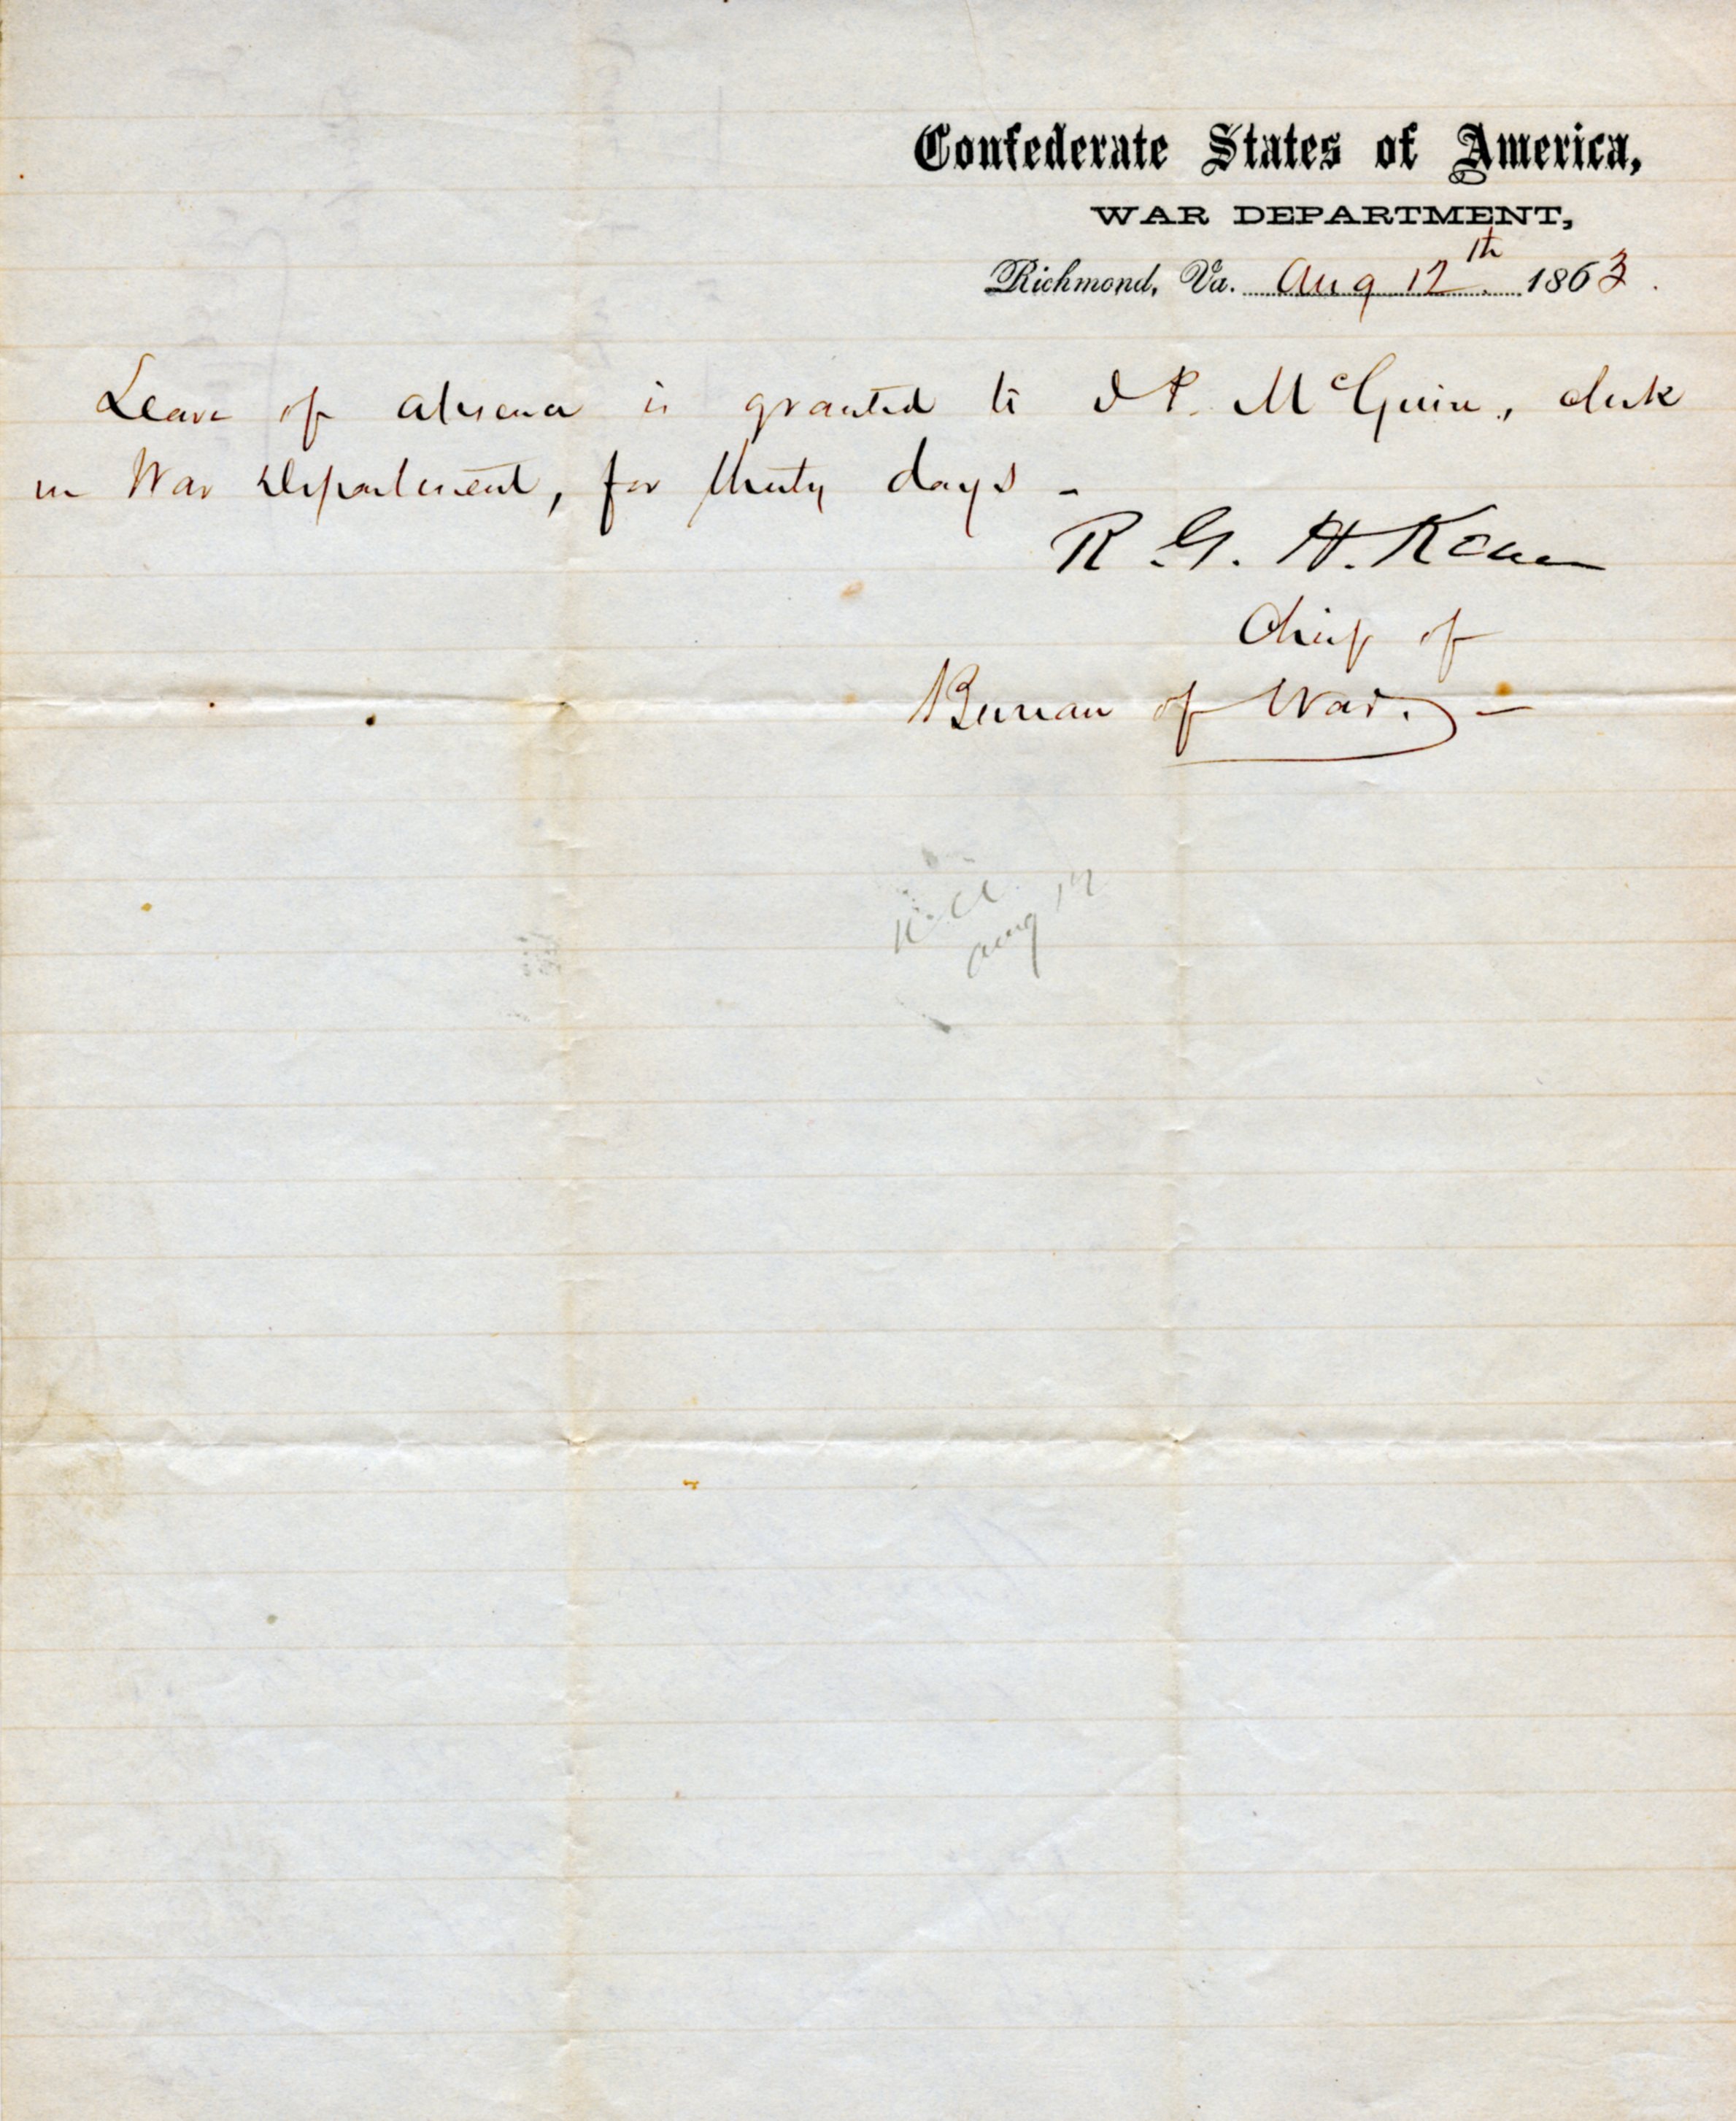 Confederate States of America,
WAR DEPARTMENT,
Richmond, Va. Aug 12th 1863.
Leave of absence is granted to J P. McGuire, clerk
in War Department, for thirty days -
R. G. H. Kean
Chief of
Bureau of War. -
Aug 12